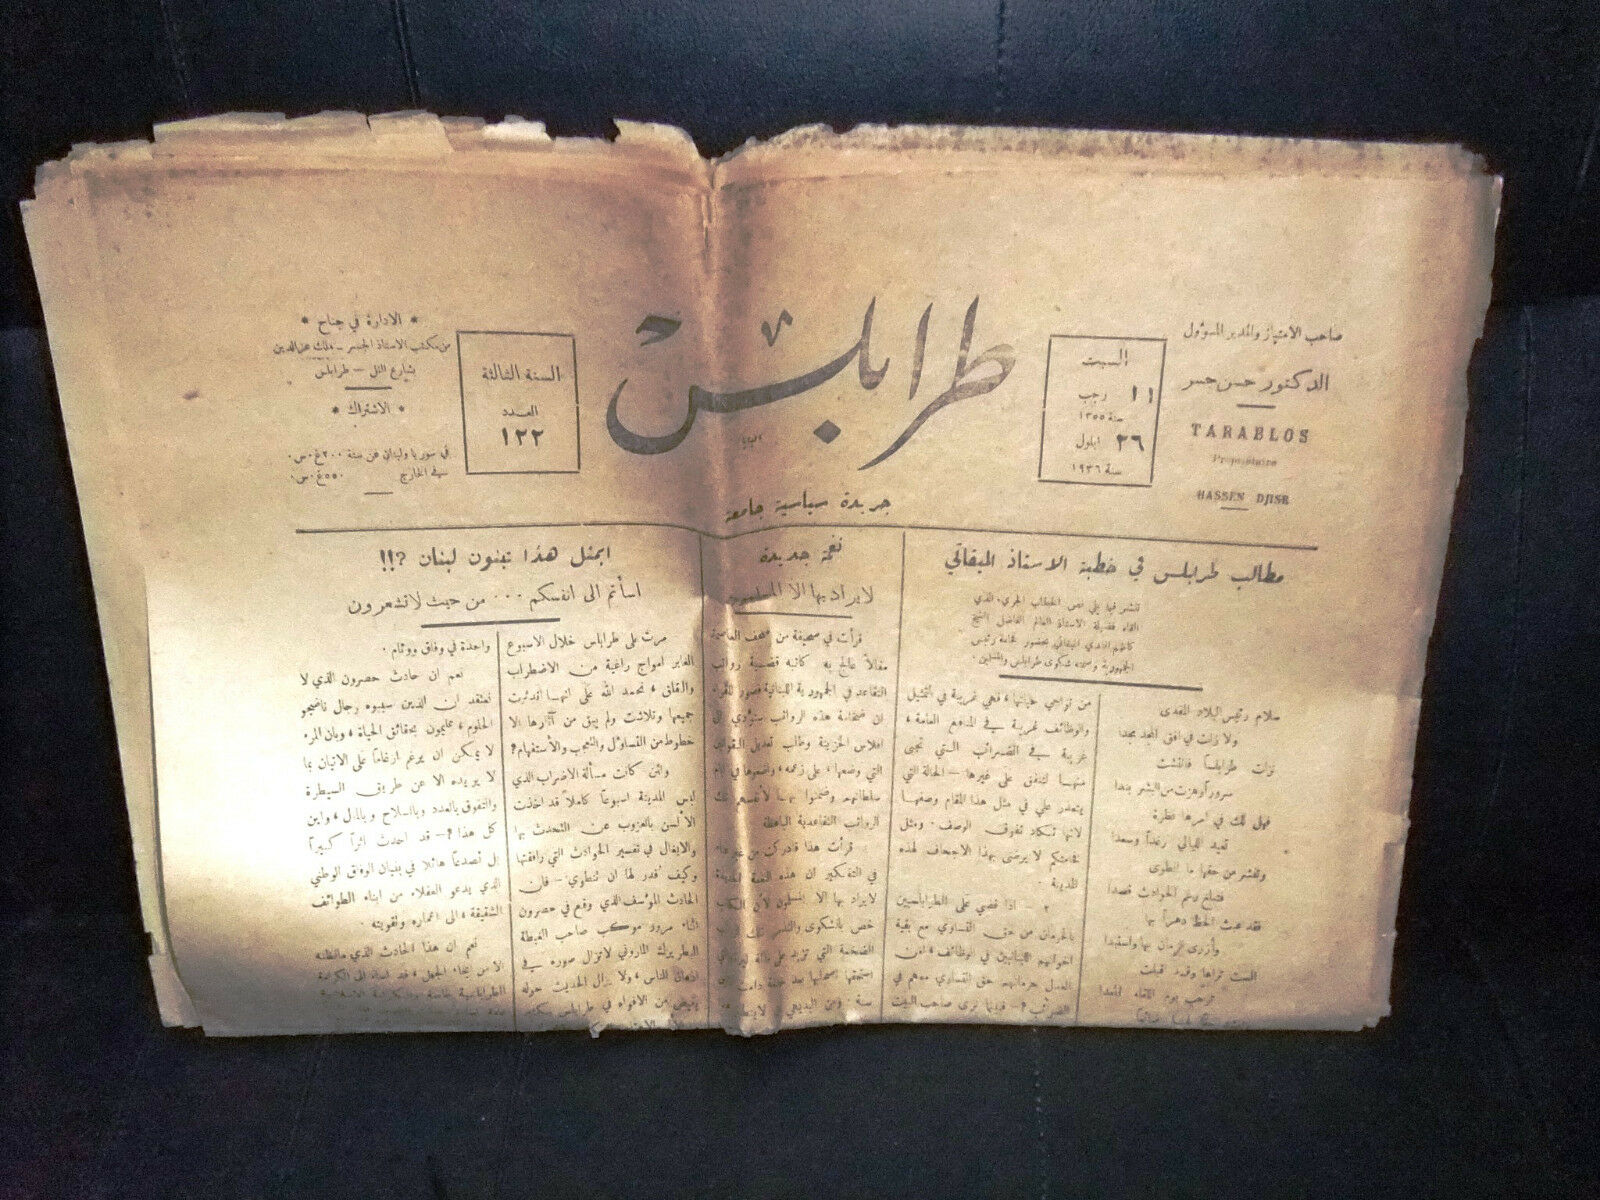 صاحب الامتياز والمدير المسؤول
الدكتور حسن جسر
TARABLOS
Propriétaire
HASSEN DJISR
السبت
١١ رجب
سنة ١٣٥٥
٢٦ ايلول
سنة ١٩٣٦
طرابلس
جريدة سياسية جامعة
السنة الثالثة
العدد
١٢٢
* الادارة في جناح *
من مكتب الاستاذ الجسر - ملك عز الدين
بشارع التل - طرابلس
* الاشتراك *
في سوريا ولبنان عن سنة ٣٠٠ غ.س.
في الخارج ٥٥٠ غ.س.
مطالب طرابلس في خطبة الاستاذ الميقاتي
ننشر فيما يلي نص الخطاب الجريء الذي
القاه فضيلة الاستاذ العالم الفاضل الشيخ
كاظم افندي الميقاتي بحضور فخامة رئيس
الجمهورية
سلام رئيس البلاد المفدى
ولا زلت في افق المجد مجدا
نزلت طرابلساً فانتشت
سروراً وهزت من البشر بندا
فهل لك في امرها نظرة
تعيد الليالي رغداً وسعدا
وتنشر من حقها ما انطوى
فتبلغ رغم الحوادث قصدا
فقد عبث الحظ دهراً بها
وأزرى الزمان بها واستبدا
من نواحي حياتها، فهي غريبة في التمثيل
والوظائف غريبة في المنافع العامة،
غريبة في الضرائب التي تجبى
منها لتنفق على غيرها - الحالة التي
يتعذر علي في مثل هذا المقام وصفها
لانها تكاد تفوق الوصف. ومثل
فخامتكم لا يرضى بهذا الاجحاف لهذه
المدينة.
٢ - اذا قضي على الطرابلسيين
بالحرمان من حق التساوي مع بقية
اخوانهم اللبنانيين في الوظائف، أمن
العدل حرمانهم حق التساوي معهم في
الضرائب؟ - فبينما نرى صاحب البيت
نغمة جديدة
لا يراد بها الا المسلمون
قرأت في صحيفة من صحف العاصمة
مقالاً عالج به كاتبه قضية رواتب
التقاعد في الجمهورية اللبنانية فصور للقراء
ان ضخامة هذه الرواتب ستؤدي الى
افلاس الخزينة وطلب تعديل القوانين
التي وضعها، على زعمه،
سلطانهم وضمنوا بها لانفسهم تلك
الرواتب التقاعدية الباهظة
قرأت هذا فادركت من غير عناء
في التفكير ان هذه النغمة الجديدة
لا يراد بها الا المسلمون لأن الكاتب
خص بالشكوى
ايمثل هذا تبنون لبنان ؟!!
اسأتم الى انفسكم ... من حيث لا تشعرون
مرت على طرابلس خلال الاسبوع
الغابر امواج راغية من الاضطراب
والقلق، نحمد الله على انها اندثرت
جميعها وتلاشت ولم يبق من آثارها الا
خطوط من التساؤل والتعجب والاستفهام؟
ولئن كانت مسألة الاضراب الذي
لبس المدينة اسبوعاً كاملاً قد اخذت
الألسن بالعزوب عن التحدث بها
والايغال في تفسير الحوادث التي رافقتها
وكيف قدر لها ان تنطوي - فان
الحادث المؤسف الذي وقع في حصرون
اثناء مرور موكب صاحب الغبطة
البطريرك الماروني لا تزال صوره في
اذهان الناس، ولا يزال الحديث حوله
يفيض من الافواه في طرابلس
واحدة في وفاق ووئام.
نعم ان حادث حصرون الذي لا
نعتقد ان الذين سببوه رجال ناضجو
الحلوم، عليمون بحقائق الحياة، وبان المرء
لا يمكن ان يرغم ارغاماً على الاتيان بما
لا يريده الا عن طريق السيطرة
والتفوق بالعدد وبالسلاح وبالمال، واين
كل هذا؟ - قد احدث اثراً كبيراً
بل تصدعاً هائلا في بنيان الوفاق الوطني
الذي يدعو العقلاء من ابناء الطوائف
الشقيقة، الى اعماره وتقويته.
نعم ان هذا الحادث الذي ما نظنه